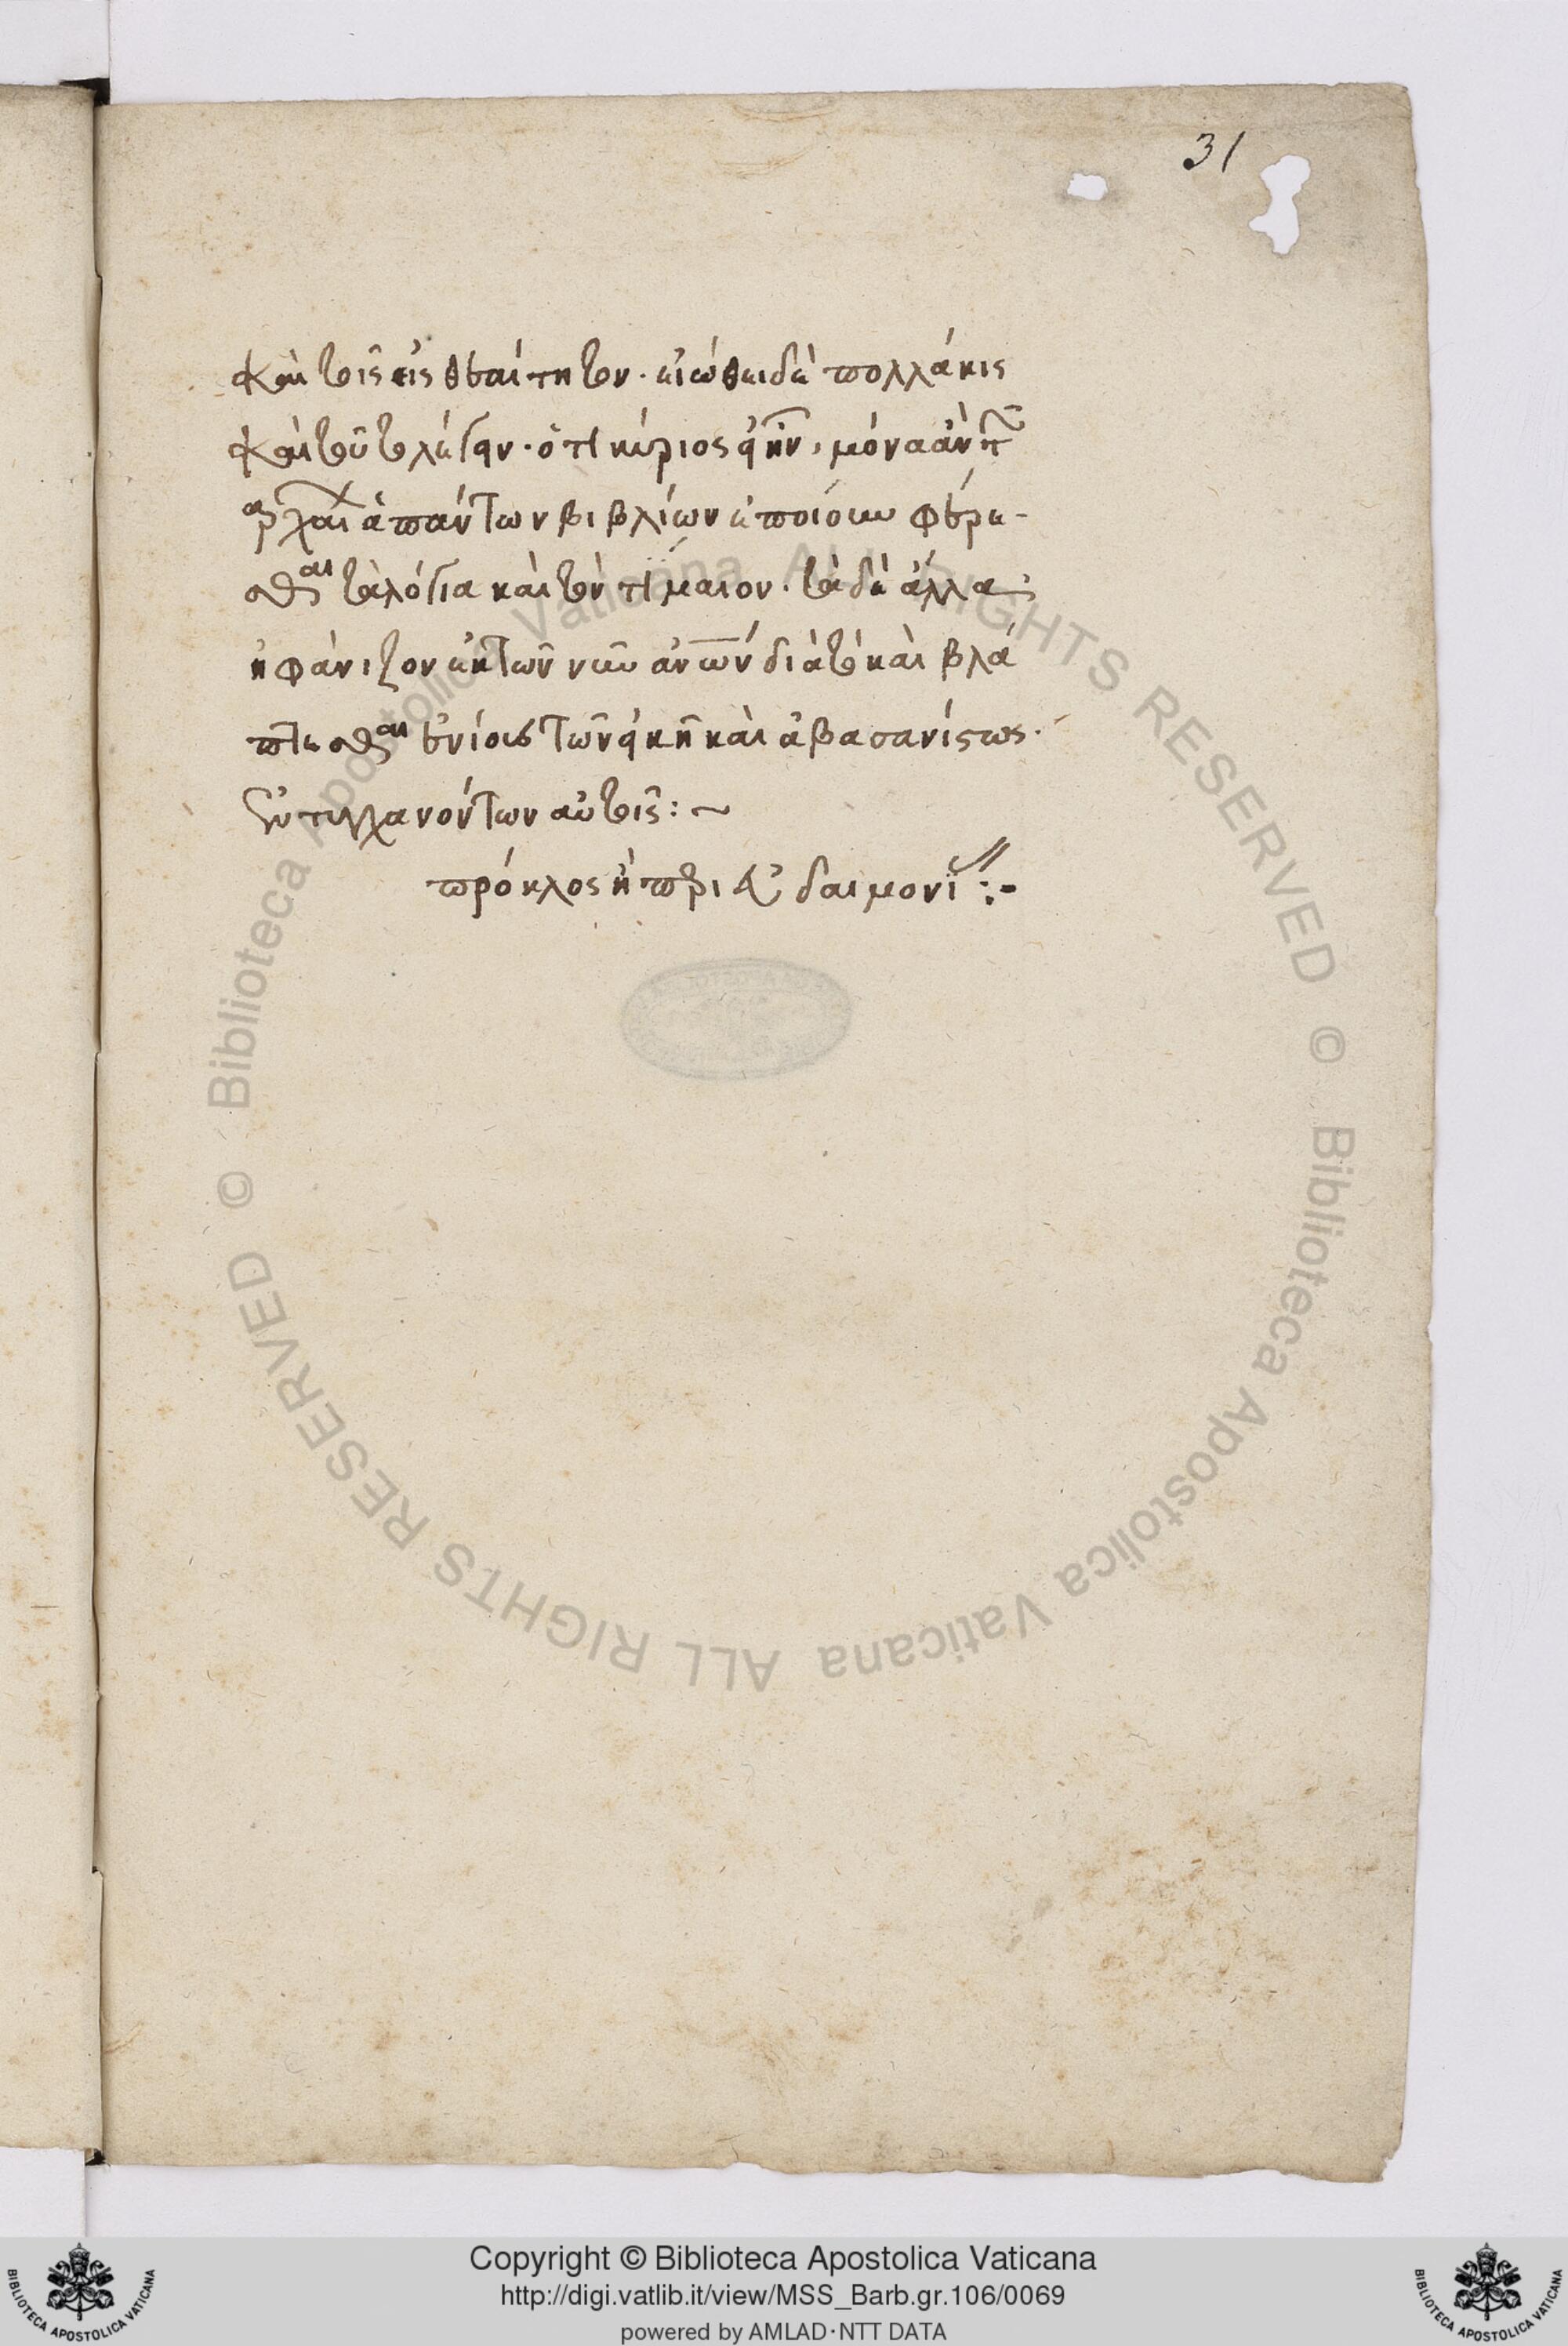 καὶ τοῖς εἰς θεαίτητον. εἰώθει δὲ πολλάκις
καὶ τοῦτο λέγειν. ὅτι κύριος εἰ ἦν, μόνα ἂν τῶν
ἀρχαίων ἁπάντων βιβλίων ἐποίουν φέρε-
σθαι τὰ λόγια καὶ τὸν τίμαιον. τὰ δὲ ἄλλα
ἠφάνιζον ἐκ τῶν νῦν ἀνων διὰ τὸ καὶ βλά
πτεσθαι ἐνίους τῶν εἰκῆ καὶ ἀβασανίστως.
ἐντυγχανόντων αὐτοῖς:~
πρόκλος ἢ περὶ εὐδαιμονί:-
31
© Biblioteca Apostolica Vaticana ALL RIGHTS RESERVED © Biblioteca Apostolica Vaticana ALL RIGHTS RESERVED
BIBLIOTECA APOSTOLICA VATICANA
Copyright © Biblioteca Apostolica Vaticana
http://digi.vatlib.it/view/MSS_Barb.gr.106/0069
powered by AMLAD·NTT DATA
BIBLIOTECA APOSTOLICA VATICANA